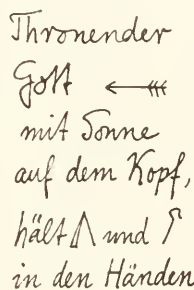 Thronender
Gott
mit Sonne
auf dem Kopf,
hält und
in den Händen